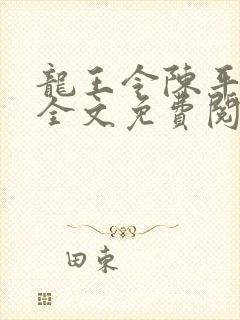 龍王令陳平
全文免費閱
田東